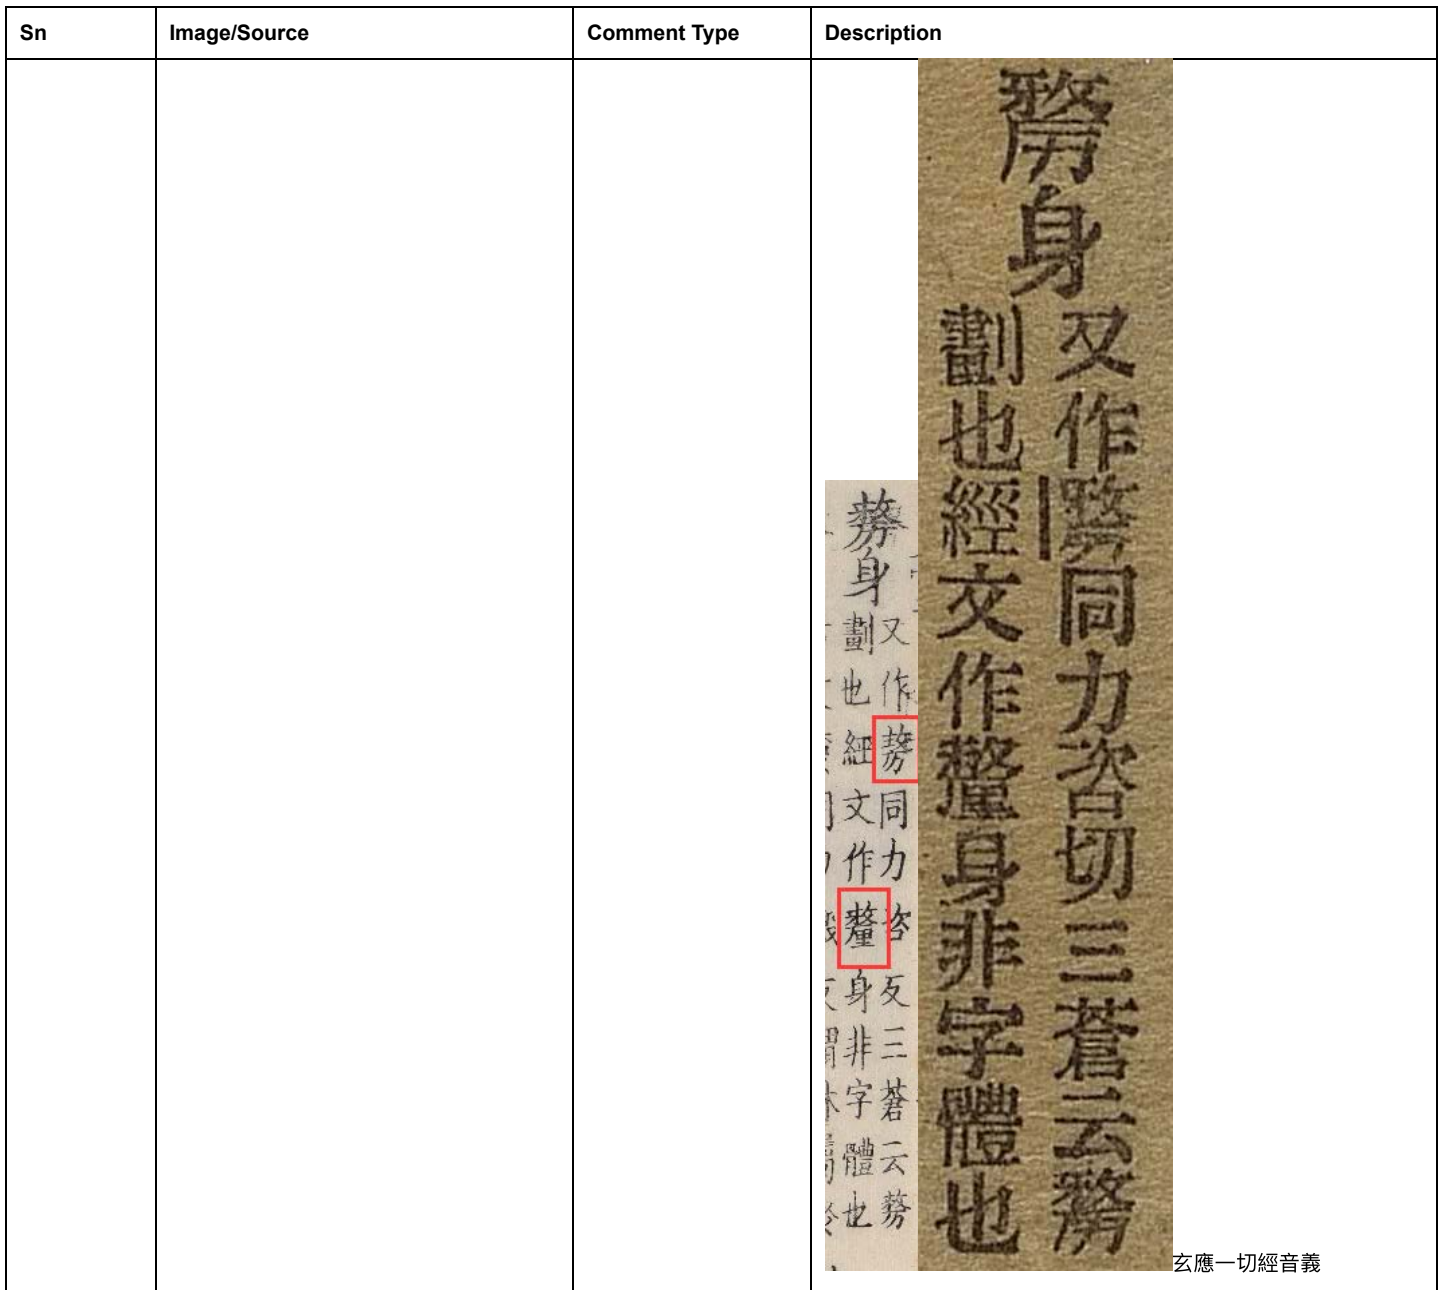 Sn
Image/Source
Comment Type
Description
剺身
又作同力咨反三蒼云剺
劃也經文作身非字體也
剺身
又作同力咨切三蒼云剺
劃也經文作身非字體也
玄應一切經音義